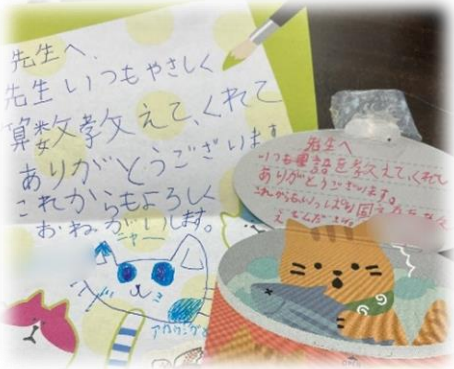 先生へ
先生いつもやさしく
算数教えて、くれて
ありがとうございます
これからもよろしく
おねがいします。
ニャー
先生へ
いつも国語を教えて、くれて
ありがとうございます。
これからも